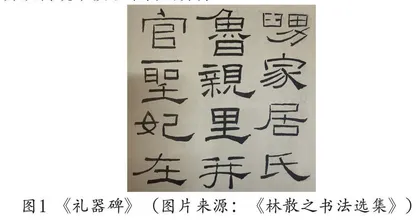 舅家居氏
魯親里并
官聖妃在
图1 《礼器碑》（图片来源：《林散之书法选集》）